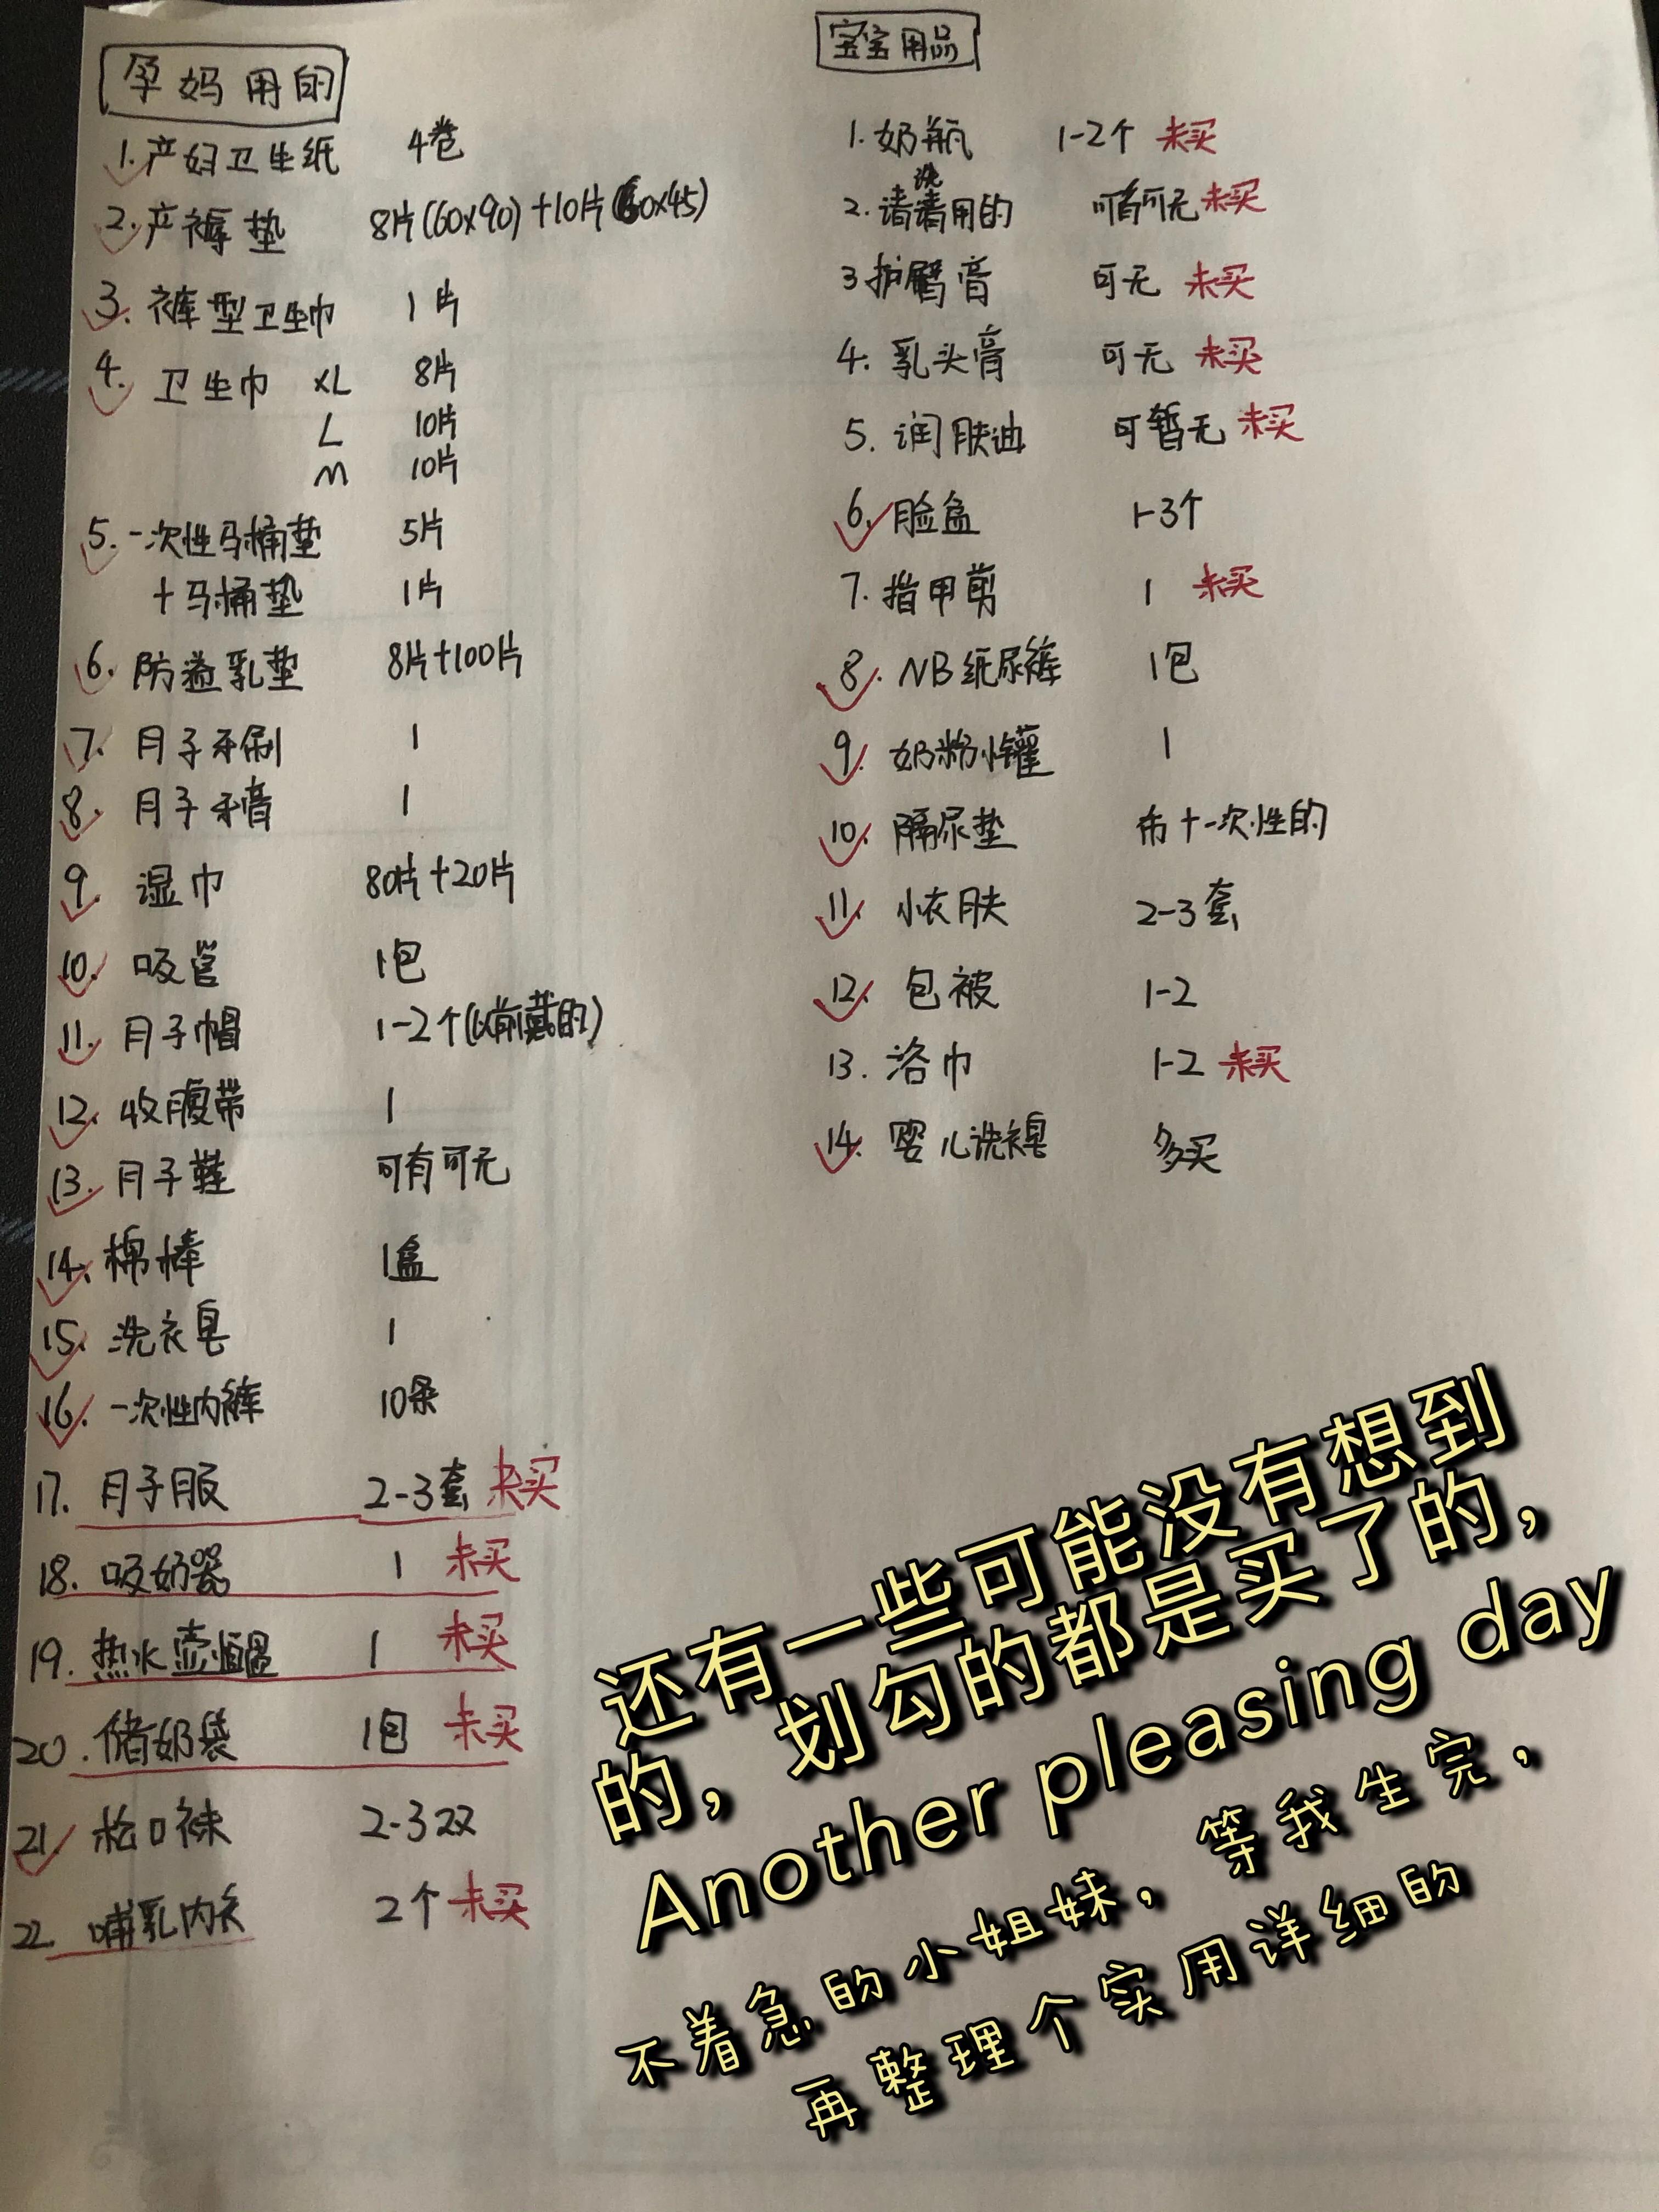 孕妈用的
1. 产妇卫生纸 4卷
2. 产褥垫 8片(60x90)+10片(60x45)
3. 裤型卫生巾 1片
4. 卫生巾 XL 8片
L 10片
M 10片
5. 一次性马桶垫 5片
+马桶垫 1片
6. 防溢乳垫 8片+100片
7. 月子牙刷 1
8. 月子牙膏 1
9. 湿巾 80片+20片
10. 吸管 1包
11. 月子帽 1-2个(以前戴的)
12. 收腹带 1
13. 月子鞋 可有可无
14. 棉棒 1盒
15. 洗衣皂 1
16. 一次性内裤 10条
17. 月子服 2-3套 未买
18. 吸奶器 1 未买
19. 热水壶恒温 1 未买
20. 储奶袋 1包 未买
21. 松口袜 2-3双
22. 哺乳内衣 2个 未买
宝宝用品
1. 奶瓶 1-2个 未买
2. 洗用的 可有可无 未买
3 护臀膏 可无 未买
4. 乳头膏 可无 未买
5. 润肤油 可暂无 未买
6. 脸盆 1-3个
7. 指甲剪 1 未买
8. NB纸尿裤 1包
9. 奶粉小罐 1
10. 隔尿垫 布+一次性的
11. 小衣肤 2-3套
12. 包被 1-2
13. 浴巾 1-2 未买
14. 婴儿洗衣皂 多买
还有一些可能没有想到
的，划勾的都是买了的，
Another pleasing day
不着急的小姐妹，等我生完，
再整理个实用详细的